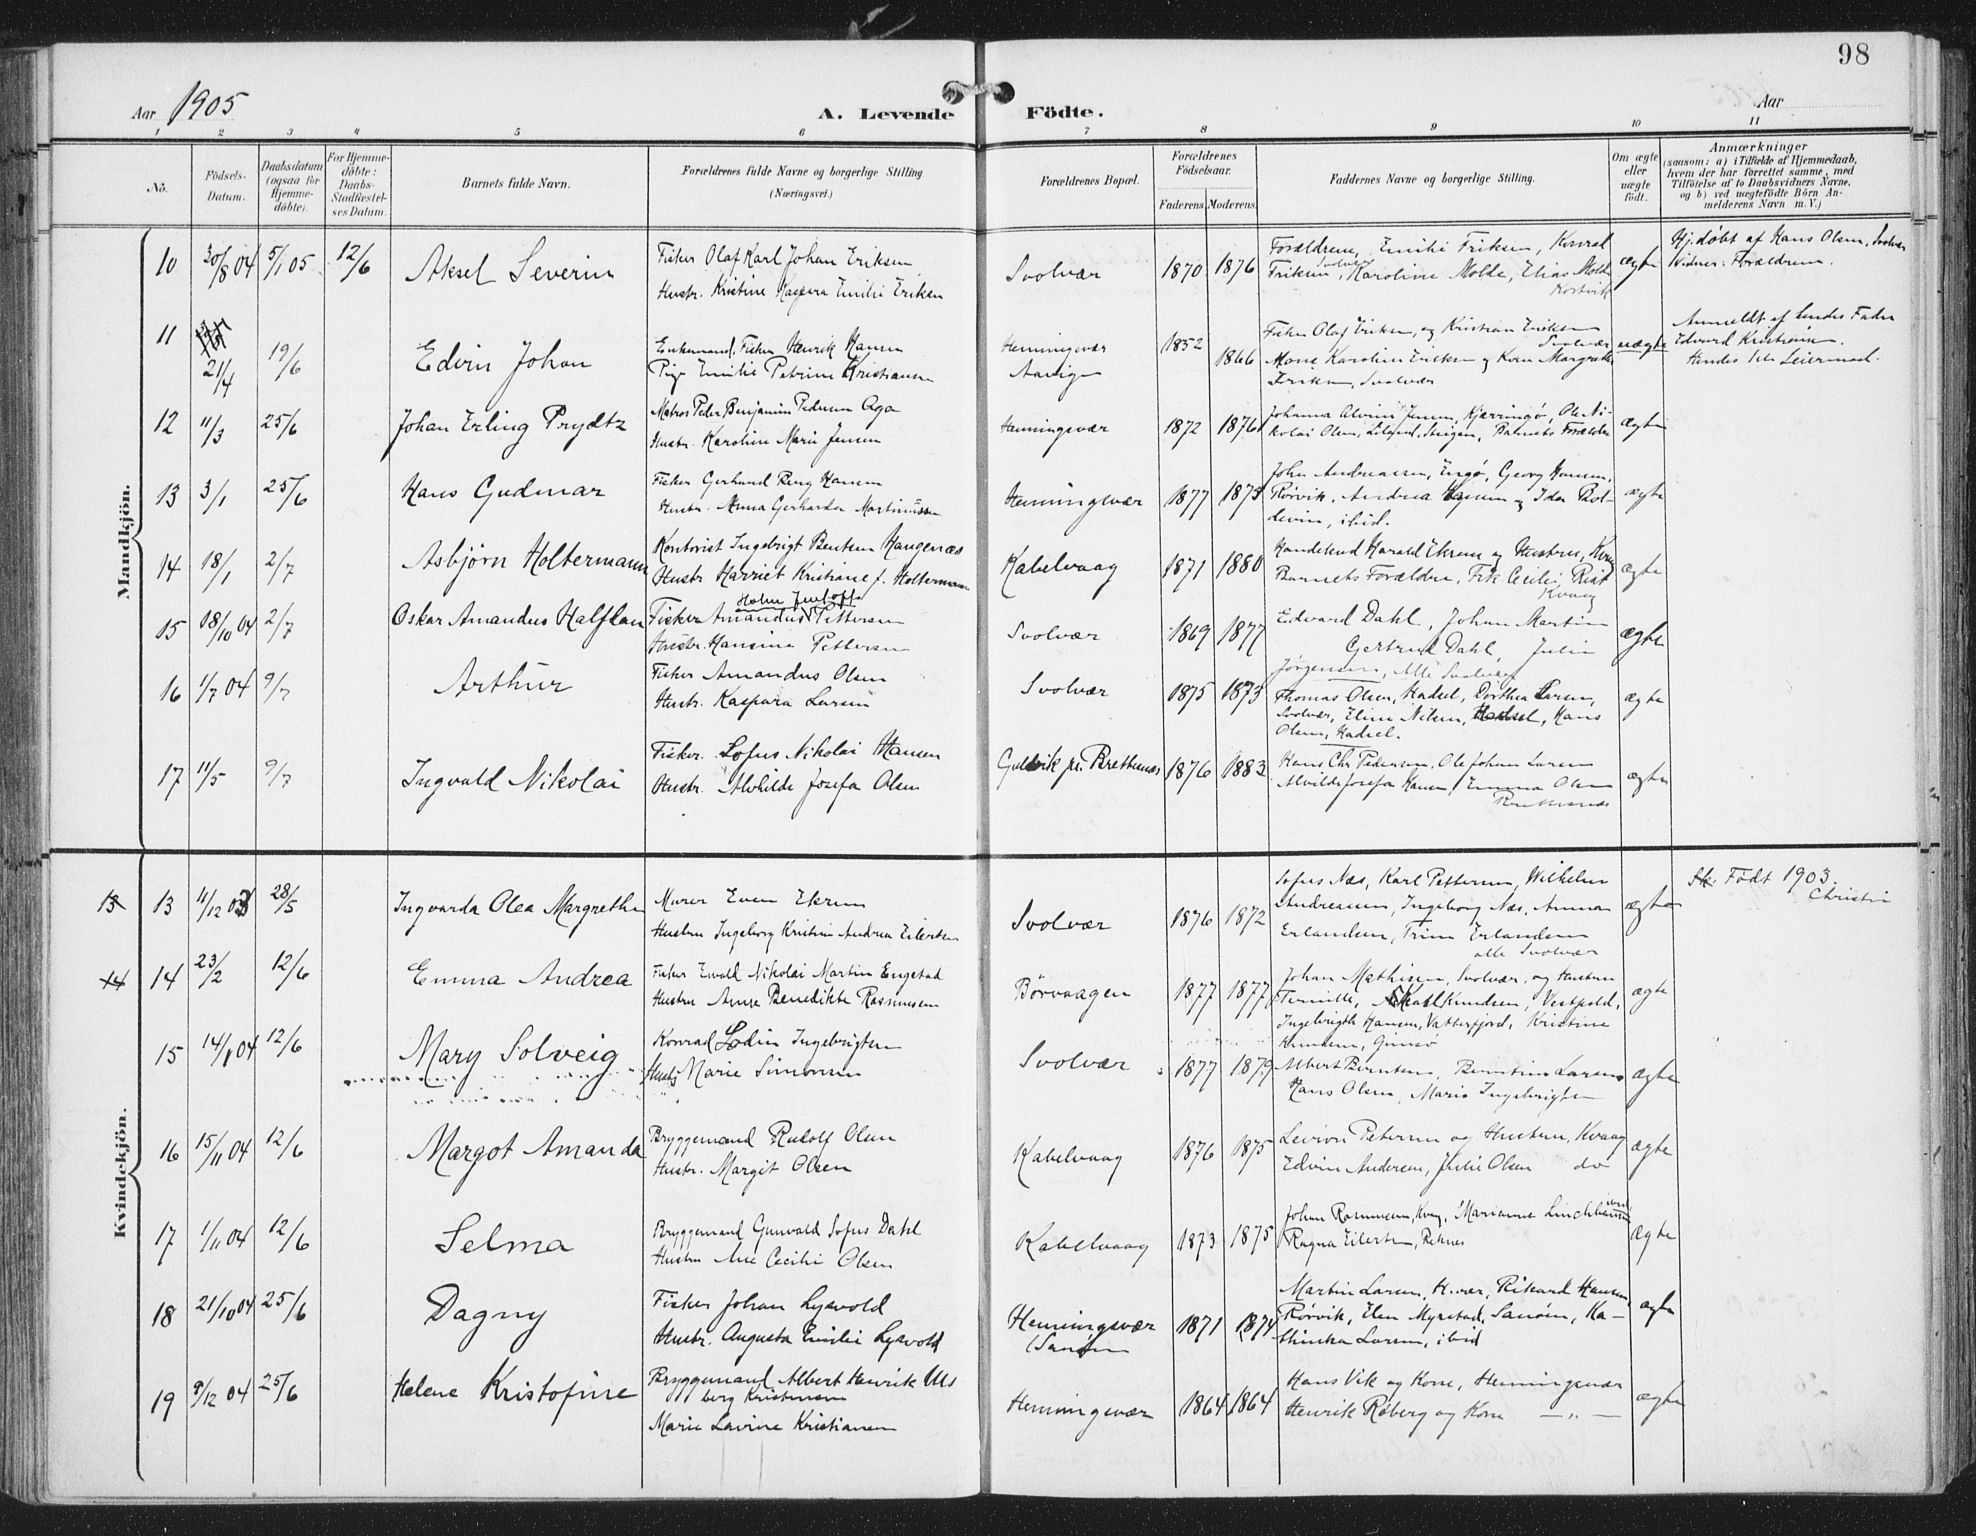 98
Aar 1905
A. Levende Födte.
Aar
1 2 3 4 5 6 7 8 9 10 11
No.
Födsels-Datum.
Daabsdatum (ogsaa for Hjemme-döbte).
For Hjemme-döbte: Daabs-Stadfæstel-ses Datum.
Barnets fulde Navn.
Forældrenes fulde Navne og borgerlige Stilling. (Næringsvei.)
Forældrenes Bopæl.
Forældrenes Födselsaar.
Faderens. Moderens.
Faddernes Navne og borgerlige Stilling.
Om ægte eller uægte födt.
Anmærkninger
(saasom: a) i Tilfælde af Hjemmedaab,
hvem der har forrettet samme, med
Tilföielse af to Daabsvidners Navne,
og b) ved uægtefödte Börn An-
melderens Navn m.V.)
Mandkjön.
10 30/8 04 5/1 05 12/6 Aksel Severin
Fisker Olaf Karl Johan Eriksen
Hustr. Kristine Kaspara Emilie Eriksen
Svolvær 1870 1876
Forældrene, Emilie Eriksen, Konrad
Eriksen Svolvær, Karoline Molde, Elias Molde
ægte
Hj.døbt af Hans Olsen, Svolvær
Vidner: Forældrene.
11 21/4 19/6 Edvin Johan
Enkemand, Fisker Henrik Hansen
Pige Emilie Petrine Kristiansen
Henningsvær 1852 1866
Fisker Olaf Eriksen, og Kristian Eriksen
Svolvær
Mona Karoline Eriksen og Kone Margrethe
Eriksen, Svolvær
uægte
Anmeldt af hendes Fader
Edvard Kristiansen.
Hendes 1ste Leiermaal.
12 11/3 25/6 Johan Erling Prydtz
Matros Peder Benjamin Pedersen Aga
Hustr. Karoline Marie Jensen
Henningsvær 1872 1876
Johanna Alvine Jensen, Kjærringø, Ole Ni-
kolai Olsen, Barnets Forældre
ægte
13 3/1 25/6 Hans Gudmar
Fisker Gerhard Berg Hansen
Hustr. Anna Gerharda Martinussen
Henningsvær 1877 1875
John Andreassen, Engø, Georg Hansen,
Rørvik, Andrea Hansen og Ida Bol-
devin, ibid.
ægte
14 18/1 2/7 Asbjørn Holtermann
Kontorist Ingebrigt Bentsen Haugenæs
Hustr Harriet Kristiane f. Holtermann
Kabelvaag 1871 1880
Handelsmd Harald Ekrem og Hustru, Kvaag
Barnets Forældre, Frk Cecilie Rist
Kvaag
ægte
15 18/10 04 2/7 Oskar Amandus Halfdan
Fisker Amandus Pettersen
Hustr. Hansine Pettersen
Svolvær 1869 1877
Edvard Dahl, Johan Martin
Gertrud Dahl, Julie
Jørgensen, Alle Svolvær
ægte
16 1/7 04 9/7 Arthur
Fisker Amandus Olsen
Hustr. Kaspara Larsen
Svolvær 1875 1873
Thomas Olsen, Hadsel, Dorthea Larsen,
Svolvær, Eline Nilsen, Hadsel, Hans
Olsen, Hadsel.
ægte
17 11/5 9/7 Ingvald Nikolai
Fisker. Sofus Nikolai Hansen
Hustr. Alvhilde Josefa Olsen
Guldvik pr. Brettesnæs 1876 1883
Hans Chr Pedersen, Ole Johan Larsen
Alvilde Josefa Hansen, Emma Olsen
Brettesnæs
ægte
Kvindekjön.
13 13 11/12 03 28/5 Ingvarda Olea Margrethe
Murer Even Ekrem
Hustru Ingeborg Kristine Andrea Eilertsen
Svolvær 1876 1872
Sofus Næs, Karl Pettersen, Wilhelm
Andreassen, Ingeborg Næs, Anna
Erlandsen, Trine Erlandsen
alle Svolvær
ægte
Født 1903.
Christie
14 14 23/2 12/6 Emma Andrea
Fisker Evald Nikolai Martin Engstad
Hustru Anne Benedikte Rasmussen
Børvaagen 1877 1877
Johan Mathisen, Svolvær, og Hustru
Pernille, Karl Knudsen, Vestpold,
Ingebrigth Hansen, Vatterfjord, Kristine
Knudsen, Gimsø
ægte
15 14/1 04 12/6 Mary Solveig
Konrad Lodin Ingebrigtsen
Hustr Marie Simonsen
Svolvær 1877 1879
Albert Berntsen, Berntine Larsen
Hans Olsen, Marie Ingebrigtsen
ægte
16 15/11 04 12/6 Margot Amanda
Bryggemand Rudolf Olsen
Hustr. Margit Olsen
Kabelvaag 1876 1875
Levion Petersen og Hustru, Kvaag
Edvin Andersen, Julie Olsen do
ægte
17 1/11 04 12/6 Selma
Bryggemand Gunvald Sofus Dahl
Hustru Ane Cecilie Olsen
Kabelvaag 1873 1875
Johan Rasmussen, Kvaag, Marianne
Ragna Eilertsen, Reknes
ægte
18 21/10 04 25/6 Dagny
Fisker Johan Lysvold
Hustr. Augusta Emilie Lysvold
Henningsvær
(Sanøen 1871 1874
Martin Larsen, H.vær, Rikard Hansen,
Rørvik, Elen Myrstad, Sanøen, Ka-
thinka Larsen, ibid
ægte
19 9/12 04 25/6 Helene Kristofine
Bryggemand Albert Henrik Uls
berg Kristensen
Marie Lavine Kristiansen
Henningsvær 1864 1864
Hans Vik og Kone, Henningsvær
Henrik Røberg og Kone — " —
ægte